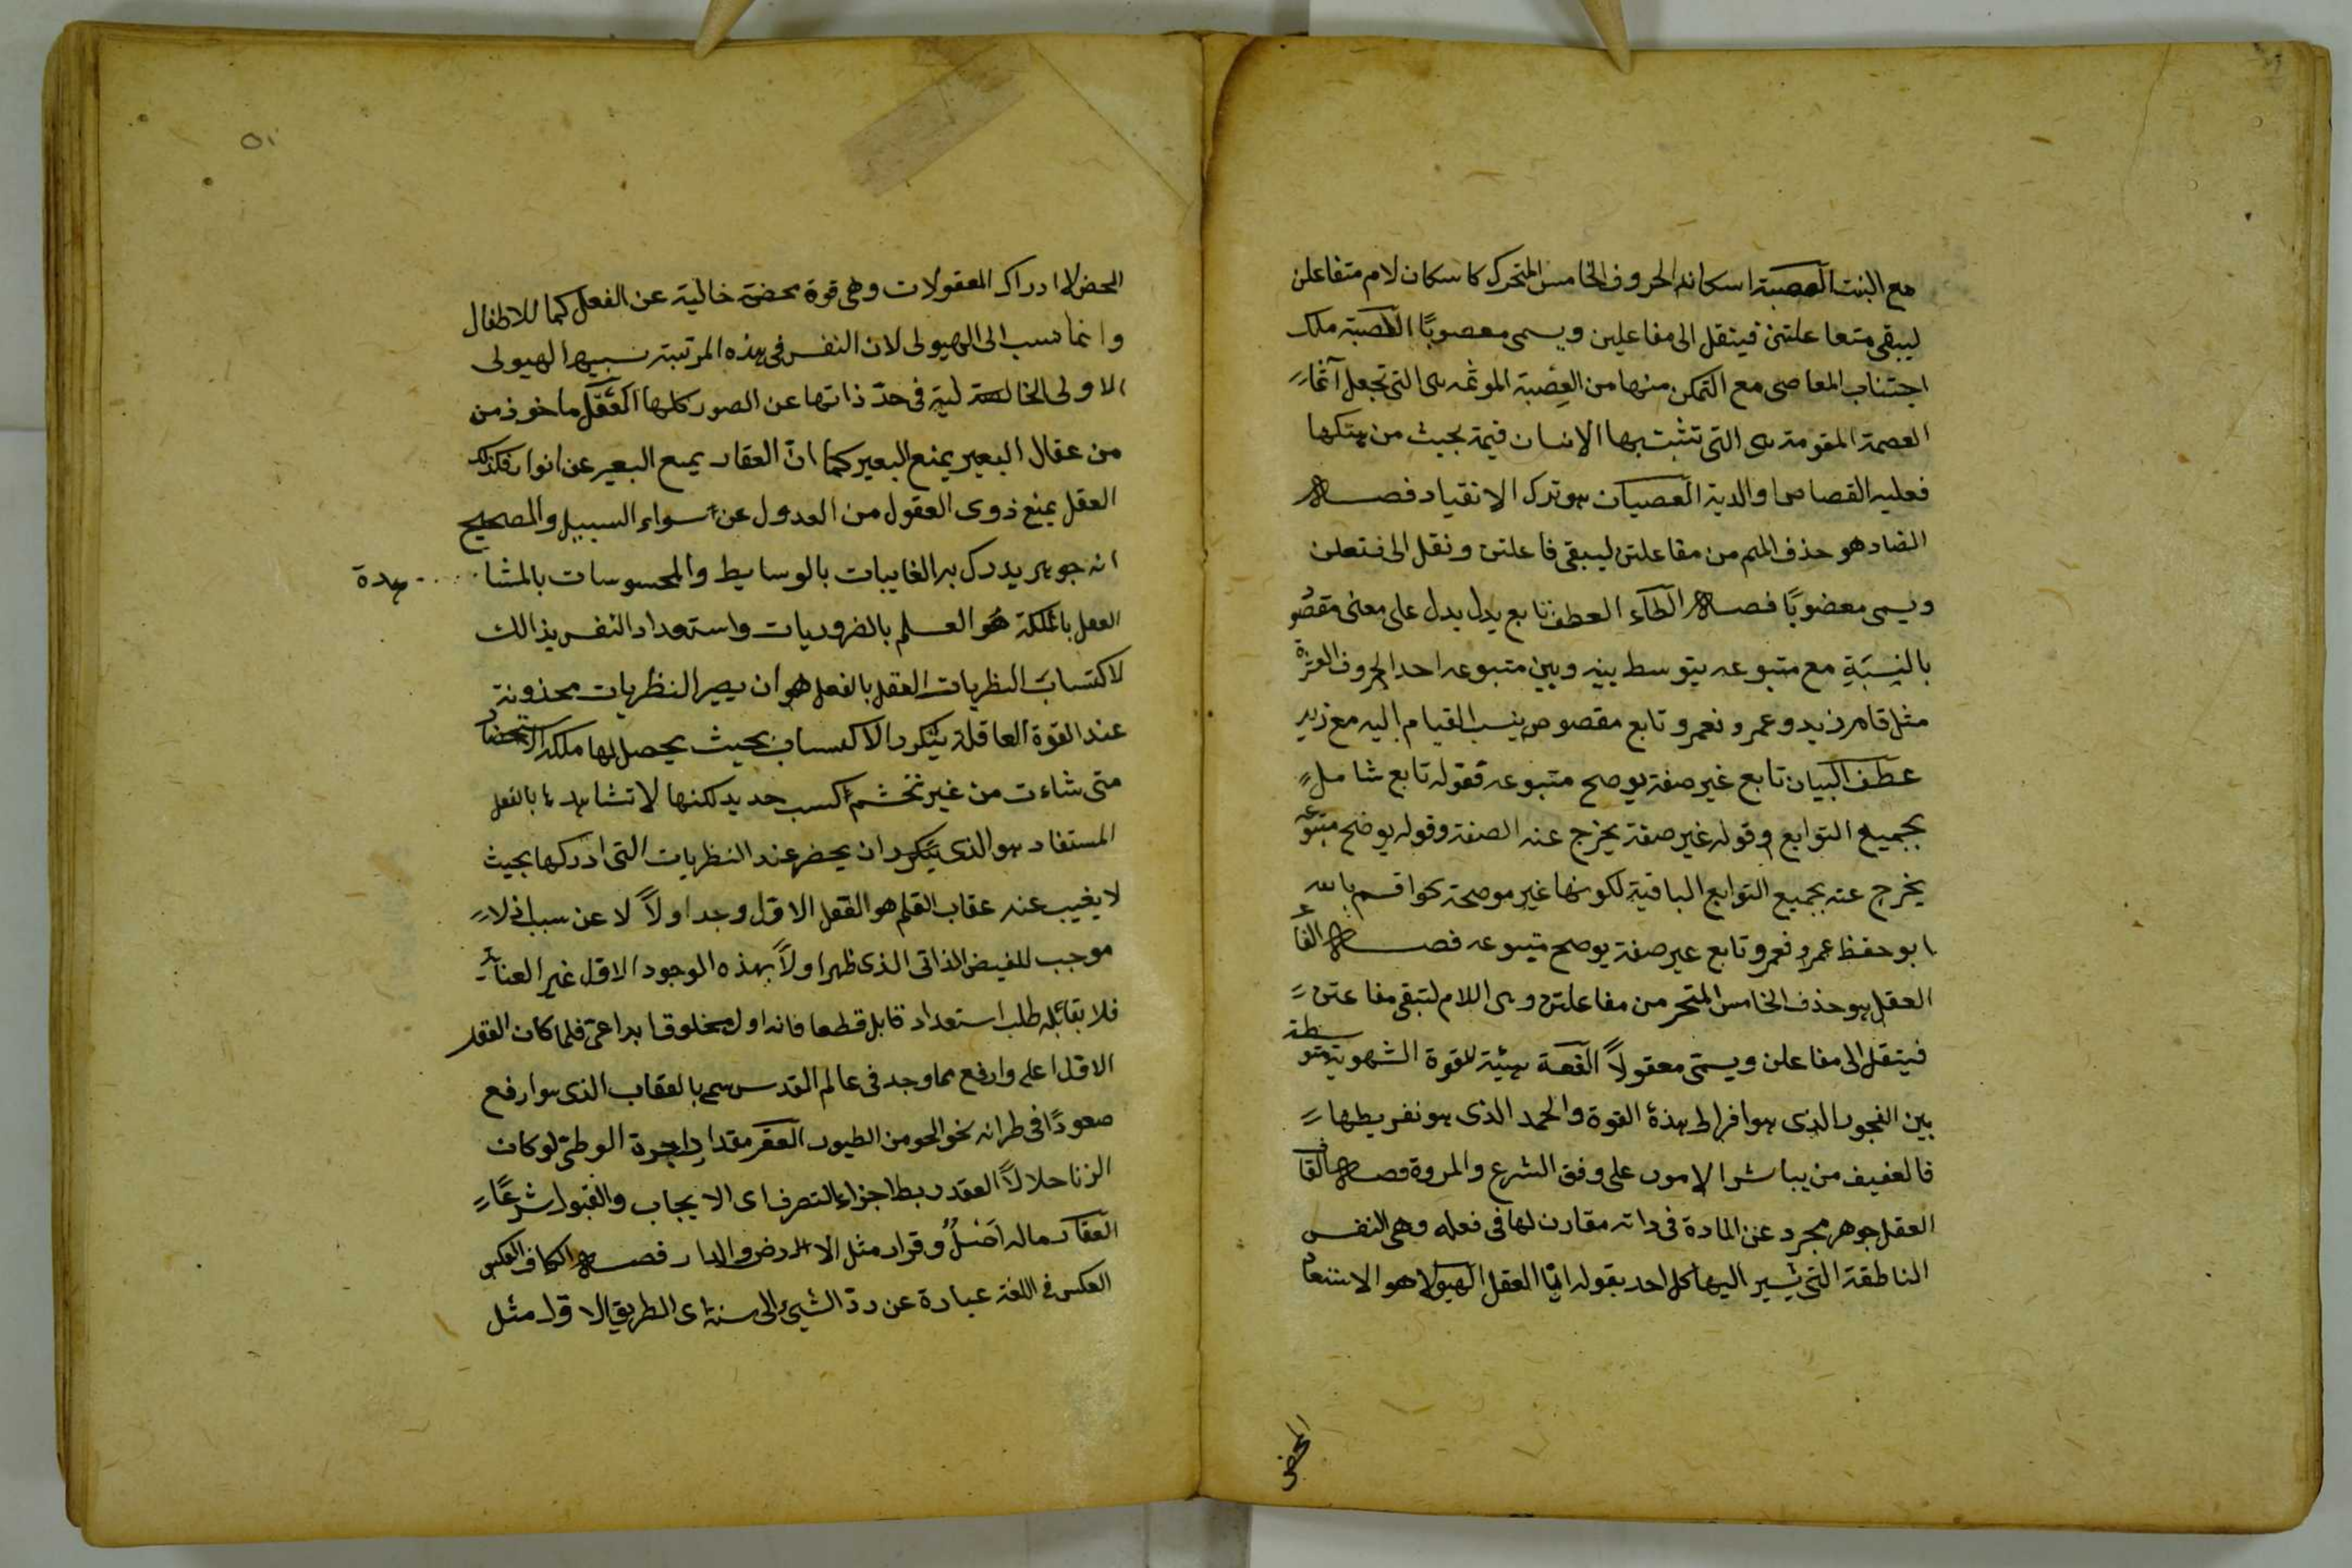 مع البنت العصبة اسكان الحروف الخامس المتحرك كاسكان لام متفاعلن
ليبقى متعاعلتن فيتقل الى مفاعلين ويسمى معصوبًا العصبة ملك
اجتناب المعاصى مع التمكن منها من العصبة الموثمه هى التى تجعل آثما
العصمة المقومة هى التى تثبت بها الانسان قيمة بحيث من هتكها
فعليه القصاص او الدية العصيان هو ترك الانقياد فصل
الضاد هو حذف الميم من مفاعلتن ليبقى فاعلتن ونقل الى فتعلن
ويسمى معضوبًا فصل الطاء العطف تابع يدل يدل على معنى مقصو
بالنِسبَةِ مع متبوعه يتوسط بينه وبين متبوعه احد الحروف العشرة
مثل قام زيد وعمرو نعمرو تابع مقصوص ينسب القيام اليه مع زيد
عطف البيان تابع غير صفة يوصح متبوعه فقوله تابع شامل
بجميع التوابع وقوله غير صفة يخرج عنه الصفة وقوله يوضح متبوعه
يخرج عنه بجميع التوابع الباقية لكونها غير موصحة نحو اقسم بالله
ابو حفظ عمرو نعمرو تابع غير صفة يوصح متبوعه فصل الفاء
العقل هو حذف الخامس المتحر من مفاعلتن وهى اللام لتبقى مفاعتن
فيتقل الى مفاعلن ويسمّى معقولاً العفة هيئة للقوة الشهوية متوسطة
بين الفجور الذى هو افراط هذه القوة والحمد الذى هو تفريطها
فالعفيف من يباشر الامور على وفق الشرع والمروة فصل القاف
العقل جوهر مجرد عن المادة فى ذاته مقارن لها فى فعله وهى النفس
الناطقة التى يشير اليها كل احد بقوله انا العقل الهيولا هو الاستعداد
المحض
المحض لا ادراك المعقولات وهى قوة محضة خالية عن الفعل كما للاطفال
وانما نسب الى الهيولى لان النفس فى هذه المرتبة تشبيها الهيولى
الاولى الخالية فى حدّ ذاتها عن الصور كلها العقل ماخوذ من
من عقال البعير يمنع البعير كما انّ العقار يمنع البعير عن انوار فكذلك
العقل يمنع ذوى العقول من العدول عن سواء السبيل والصحيح
انه جوهر يدرك به الغايبات بالوسايط والمحسوسات بالمشا - هدة
العقل بالملكة هو العلم بالضروريات واستعداد النفس بذالك
لاكتساب النظريات العقل بالفعل هو ان يصير النظريات مخذونة
عند القوة العاقلة يتكرر الاكتساب بحيث يحصل لها ملكة الاستحضار
متى شاءت من غير تخشم كسب حديد لكنها لا تشاهدها بالفعل
المستفاد هو الذى يتكرر ان يحضر عند النظريات التى ادركها بحيث
لا يغيب عنه عقاب القلم هو العقل الاول وجد اولاً لا عن سبب اذ لا
موجب للفيض الذاتى الذى ظهر اولاً بهذه الموجود الاول غير العناية
فلا يقابله طلب استعداد قابل قطعا فانه اول مخلوق ابداعى فلما كان العقل
الاول اعلى وارفع مما وجد فى عالم القدس سمى بالعقاب الذى هو ارفع
صعودًا فى طرانه نحو الجو من الطيور العقر مقدار اجرة الوطئ لو كان
الزنا حلالاً العقد ربط اجزاء التصرف اى الايجاب والقبول شرعًا
العقار ماله اَصْلٌ وقرار مثل الارض والدار فصل الكاف العكس
العكس فى اللغة عبارة عن ردّ الشيئ الى سنته اى الطريق الاول مثل